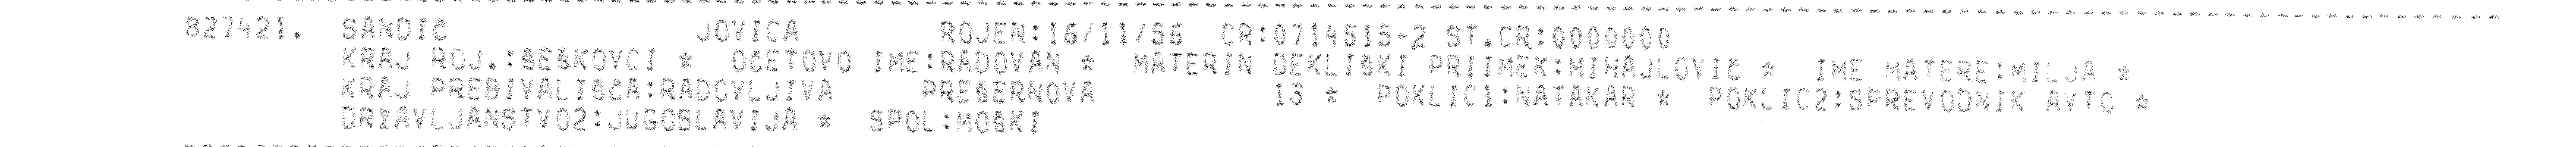 827421. SANDIČ JOVICA ROJEN:16/11/56 CR:0714515-2 ST.CR:0000000
KRAJ ROJ.:ŠEŠKOVCI * OČETOVO IME:RADOVAN * MATERIN DEKLIŠKI PRIIMEK:MIHAJLOVIČ * IME MATERE:MILJA *
KRAJ PREBIVALIŠČA:RADOVLJIVA PREŠERNOVA 13 * POKLIC1:NATAKAR * POKLIC2:SPREVODNIK AVTO *
DRŽAVLJANSTVO2:JUGOSLAVIJA * SPOL:MOŠKI